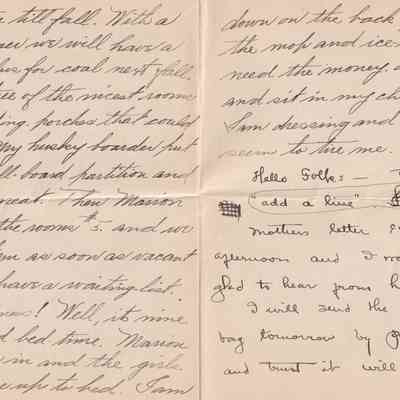 till fall. With a
we will have a
for coal next fall.
of the nicest rooms
porches that could
My husky boarder put
board partition and
neat. Then Marion
the rooms $5. and we
as soon as vacant
have a waiting list.
! Well, it's nine
bed time. Marion
in and the girls
up to bed. I am
down on the back
the mop and ice
need the money.
and sit in my ch
I am dressing and
seem to tire me.
Hello Folks:—
"add a line"
mothers letter
afternoon and I wa
glad to hear from h
I will send the
bag tomorrow by
and trust it will